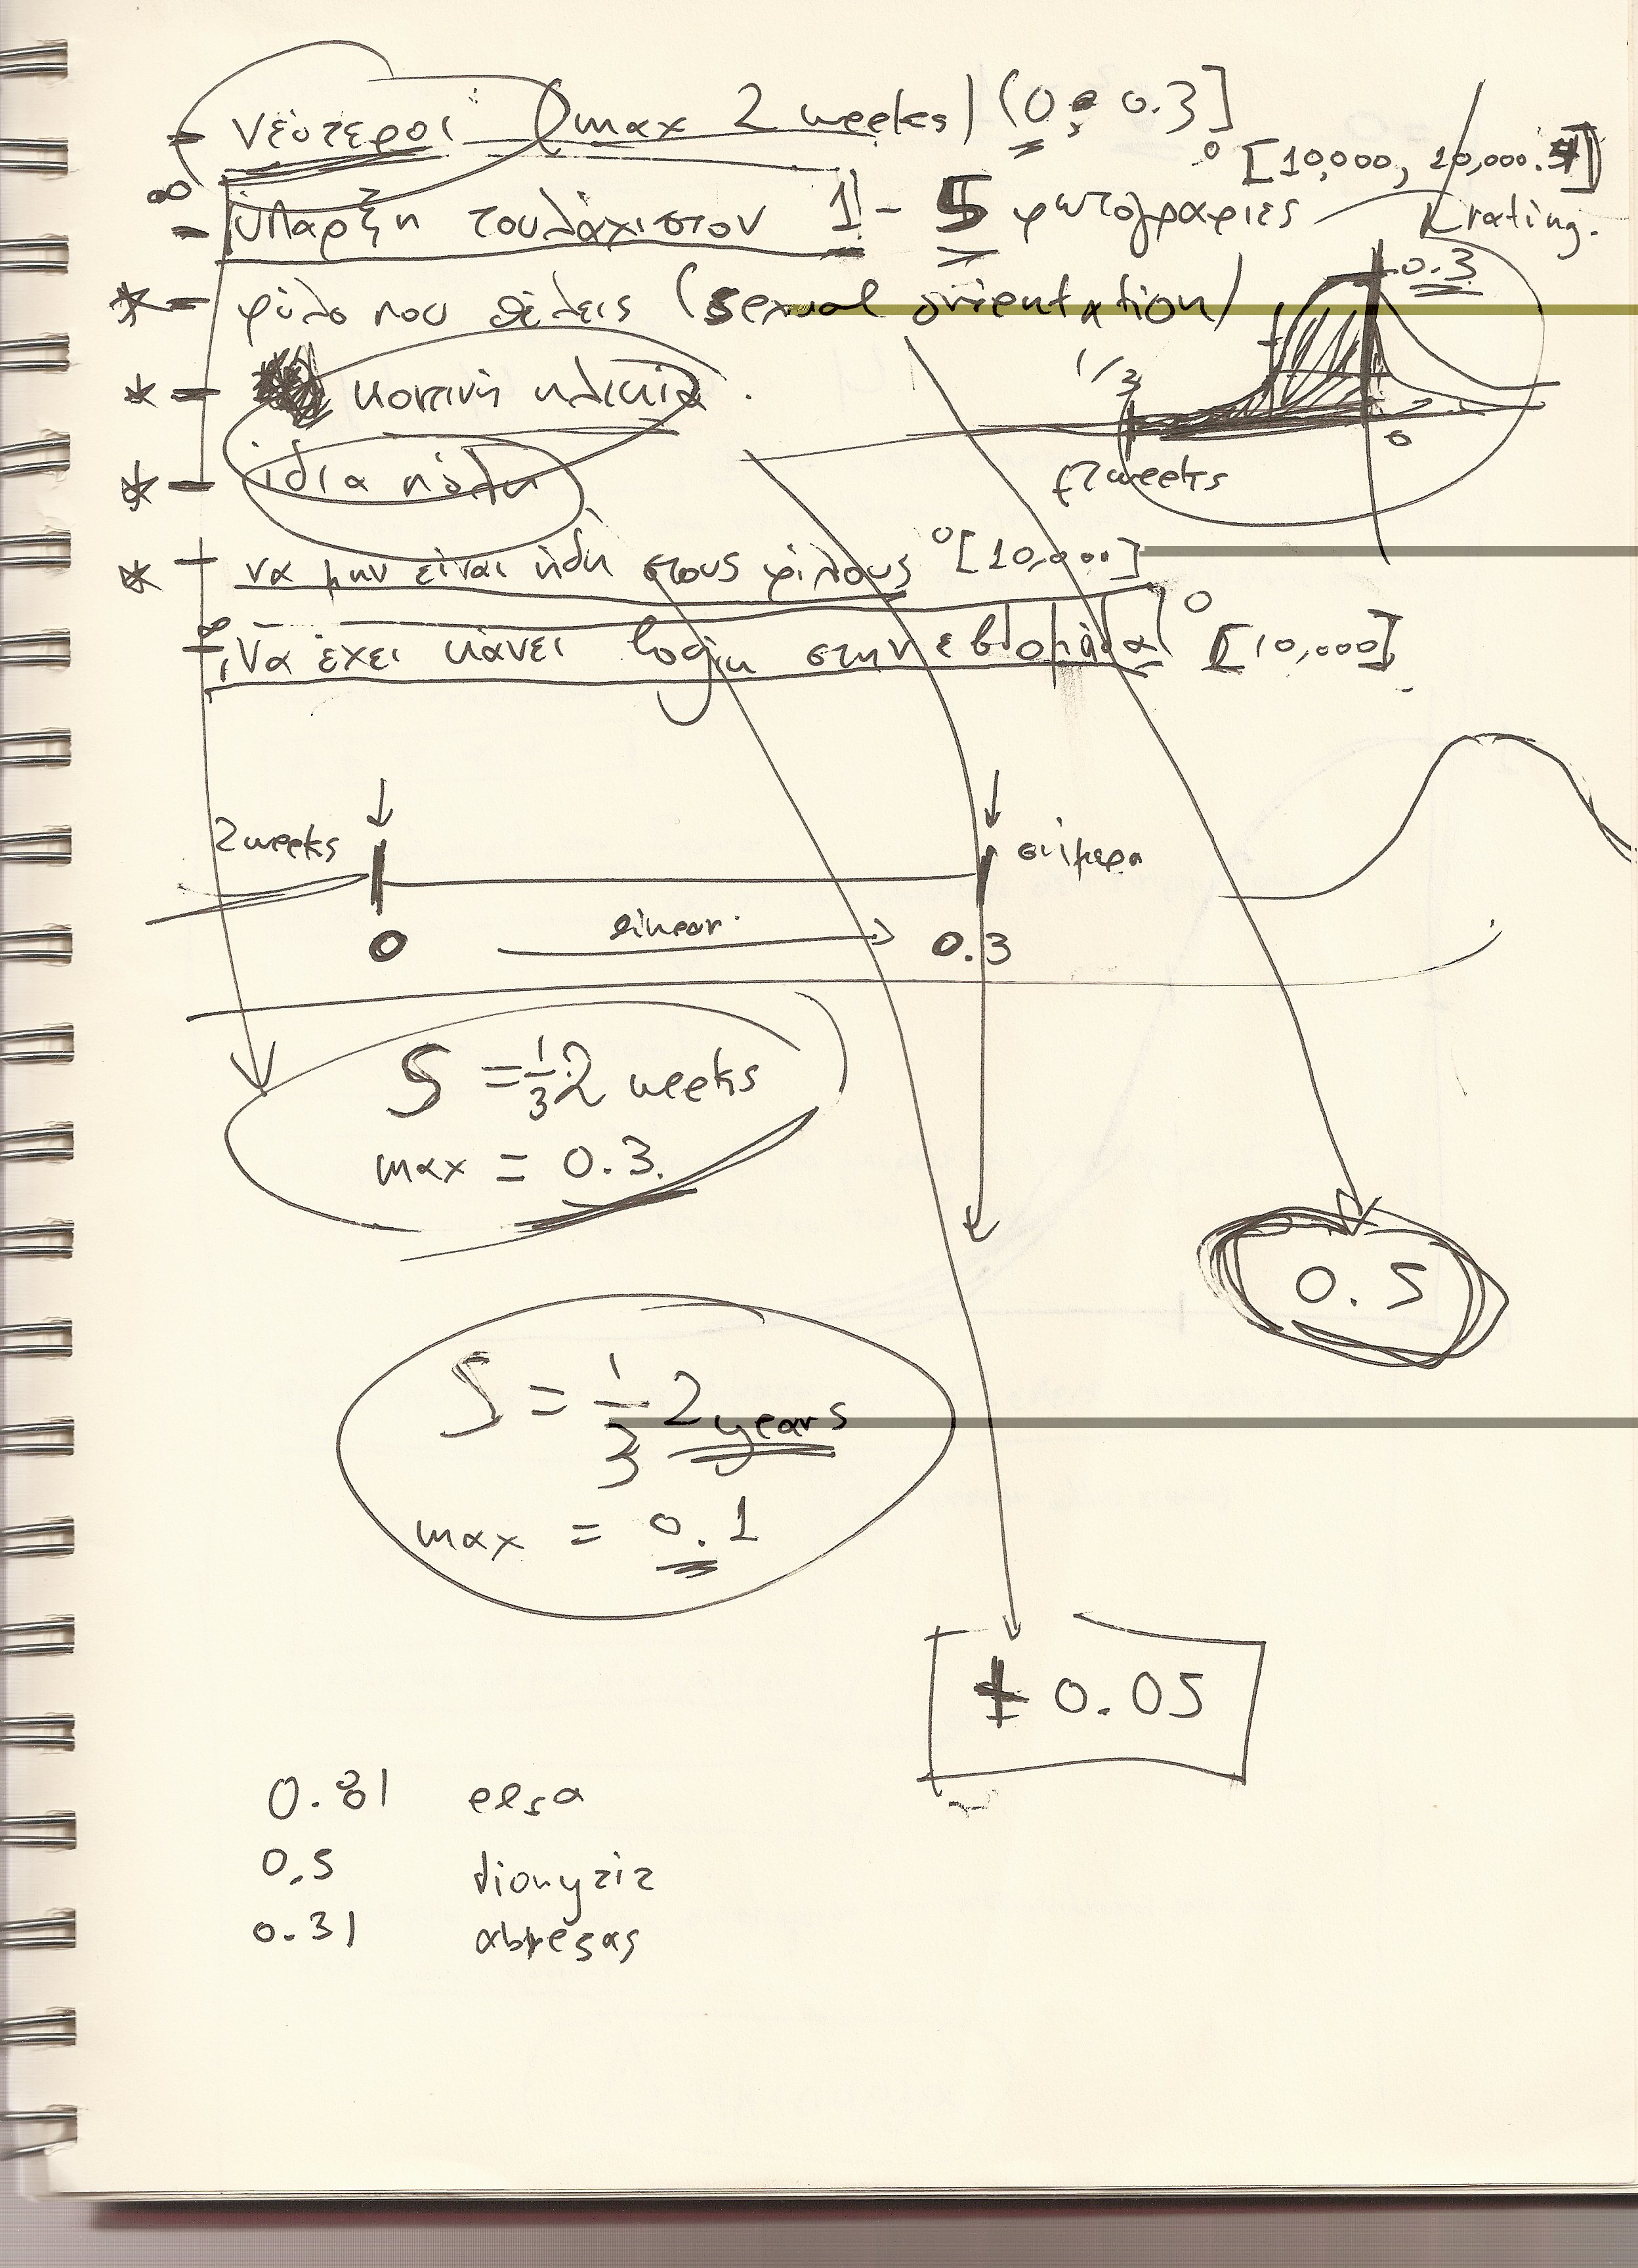 - νεότεροι (max 2 weeks) (0, 0.3]
[10,000, 20,000.
∞
- ύπαρξη τουλάχιστον 1 - 5 φωτογραφιες rating.
0.3
* - φύλο που θέλεις (sexual orientation)
1/3
* - κοντινή ηλικία.
0
2 weeks
* - ίδια πόλη
* - να μην είναι ήδη στους φίλους 0 [10,000]
∞
- να έχει κάνει login στην εβδομάδα 0 [10,000]
2 weeks σήμερα
0 linear 0.3
S = 1/3 2 weeks
max = 0.3
0.5
S = 1/3 2 years
max = 0.1
+ 0.05
0.81 elsa
0.5 dionyziz
0.31 abresas